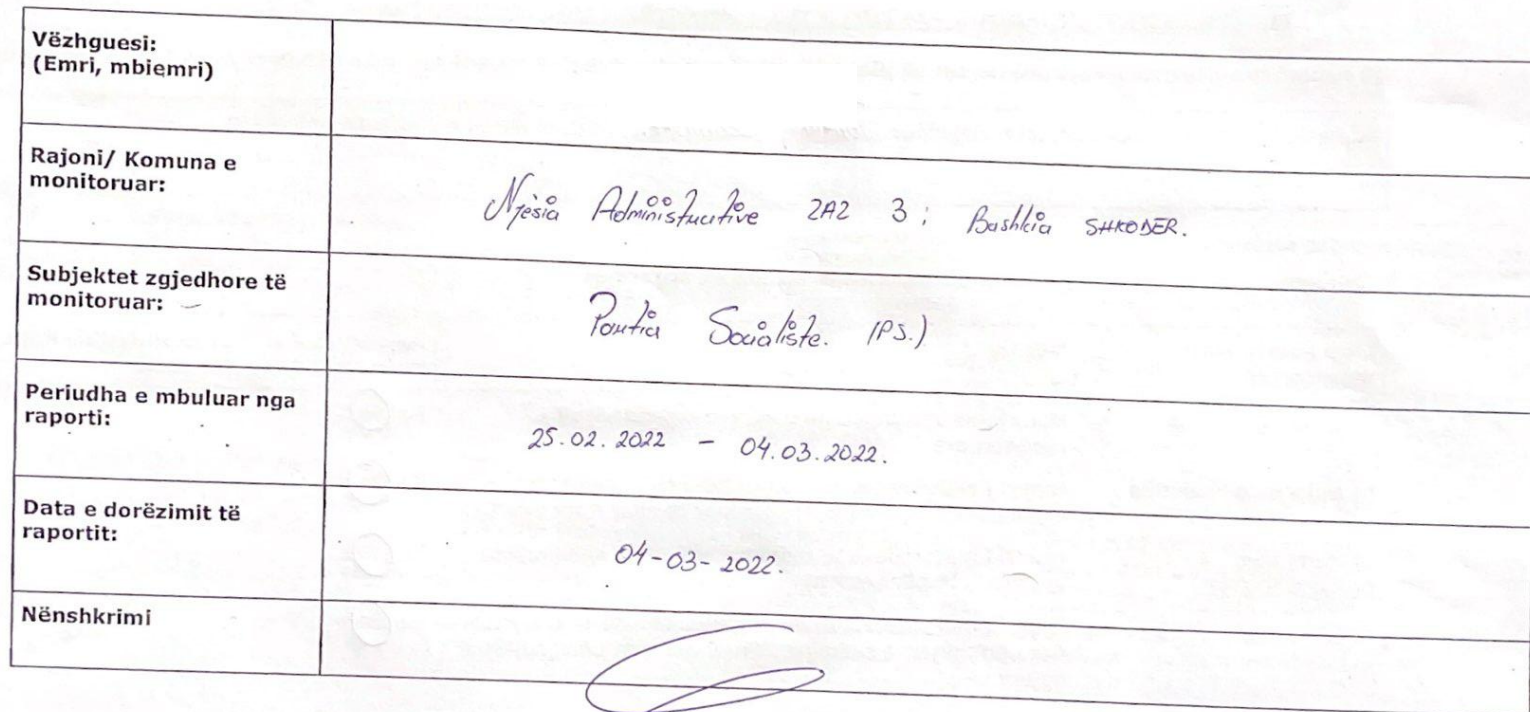 Vëzhguesi:
(Emri, mbiemri)
Rajoni/ Komuna e
monitoruar:
Njësia Administrative ZAZ 3, Bashkia SHKODER.
Subjektet zgjedhore të
monitoruar:
Partia Socialiste. (PS.)
Periudha e mbuluar nga
raporti:
25.02.2022 - 04.03.2022.
Data e dorëzimit të
raportit:
04-03-2022.
Nënshkrimi